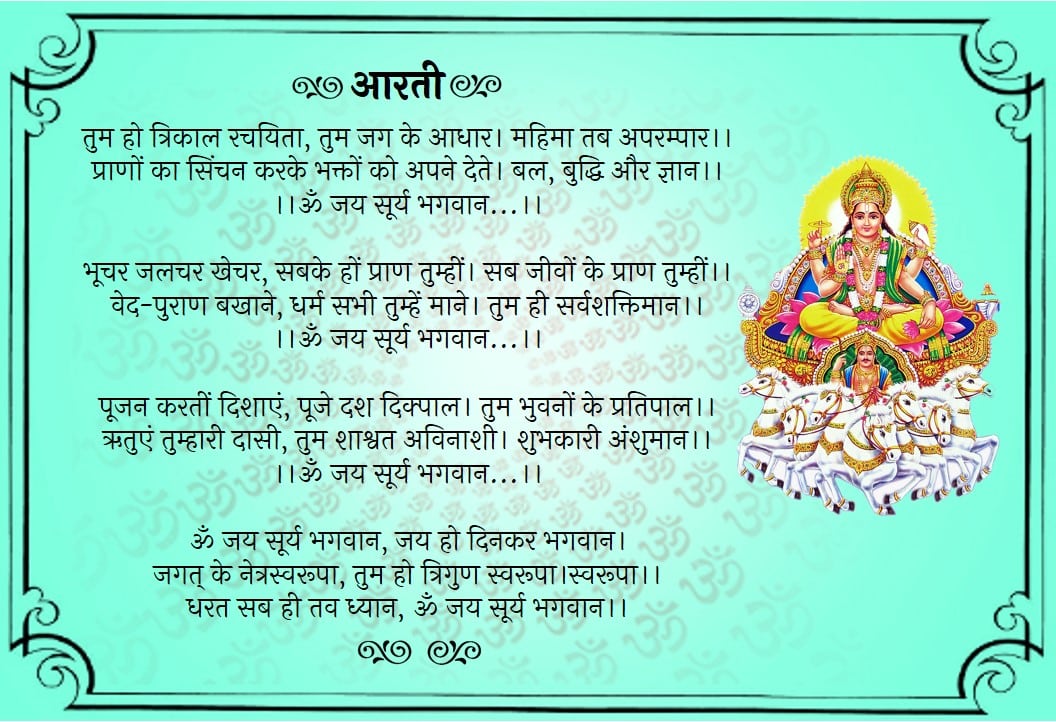 आरती
तुम हो त्रिकाल रचयिता, तुम जग के आधार। महिमा तब अपरम्पार।।
प्राणों का सिंचन करके भक्तों को अपने देते। बल, बुद्धि और ज्ञान।।
।।ॐ जय सूर्य भगवान...।।
भूचर जलचर खेचर, सबके हों प्राण तुम्हीं। सब जीवों के प्राण तुम्हीं।।
वेद-पुराण बखाने, धर्म सभी तुम्हें माने। तुम ही सर्वशक्तिमान।।
।।ॐ जय सूर्य भगवान...।।
पूजन करतीं दिशाएं, पूजे दश दिक्पाल। तुम भुवनों के प्रतिपाल।।
ऋतुएं तुम्हारी दासी, तुम शाश्वत अविनाशी। शुभकारी अंशुमान।।
।।ॐ जय सूर्य भगवान...।।
ॐ जय सूर्य भगवान, जय हो दिनकर भगवान।
जगत् के नेत्रस्वरूपा, तुम हो त्रिगुण स्वरूपा।स्वरूपा।।
धरत सब ही तव ध्यान, ॐ जय सूर्य भगवान।।